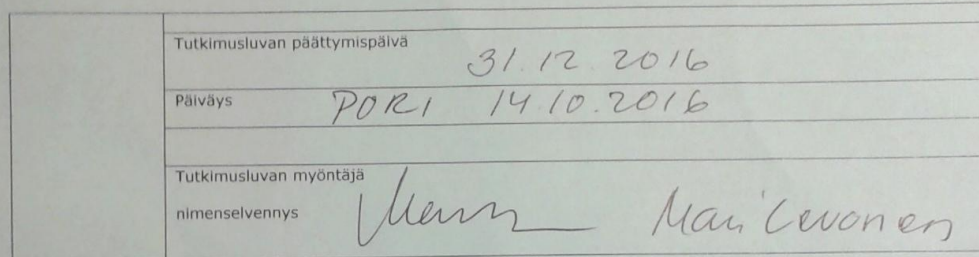 Tutkimusluvan päättymispäivä 31.12.2016
Päiväys PORI 14.10.2016
Tutkimusluvan myöntäjä
nimenselvennys Mari Levonen